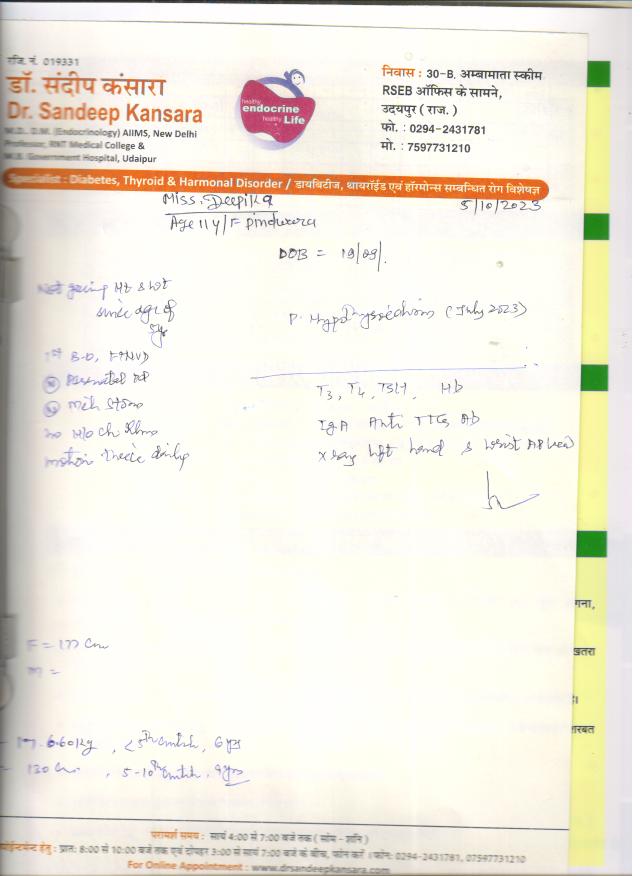 रजि. नं. 019331
डॉ. संदीप कंसारा
Dr. Sandeep Kansara
M.D., D.M. (Endocrinology) AIIMS, New Delhi
Professor, RNT Medical College &
M.B. Government Hospital, Udaipur
healthy
endocrine
healthy Life
निवास : 30-B, अम्बामाता स्कीम
RSEB ऑफिस के सामने,
उदयपुर ( राज. )
फो. : 0294-2431781
मो. : 7597731210
Specialist : Diabetes, Thyroid & Harmonal Disorder / डायबिटीज, थायरॉईड एवं हॉरमोन्स सम्बन्धित रोग विशेषज्ञ
Miss. Deepika
5/10/2023
Age 11 y/F Pindwara
DOB = 19/09/.
Not Ht & wt
since age of
5yr
P. Hypothyroidism (July 2023)
1st B.O, FTNVD
T3, T4, TSH, Hb
IgA Anti TTG Ab
no H/o ch
motion daily
X ray left hand & wrist AP view
F = 177 cm
m =
6.60 Kg, < 5th centile, 6 yrs
130 cm, 5-10th centile, 9yrs
गना,
खतरा
है।
शरबत
परामर्श समय : सायं 4:00 से 7:00 बजे तक ( सोम - शनि )
हेतु : प्रात: 8:00 से 10:00 बजे तक एवं दोपहर 3:00 से सायं 7:00 बजे के बीच, फोन करें । फोन: 0294-2431781, 07597731210
For Online Appointment : www.drsandeepkansara.com